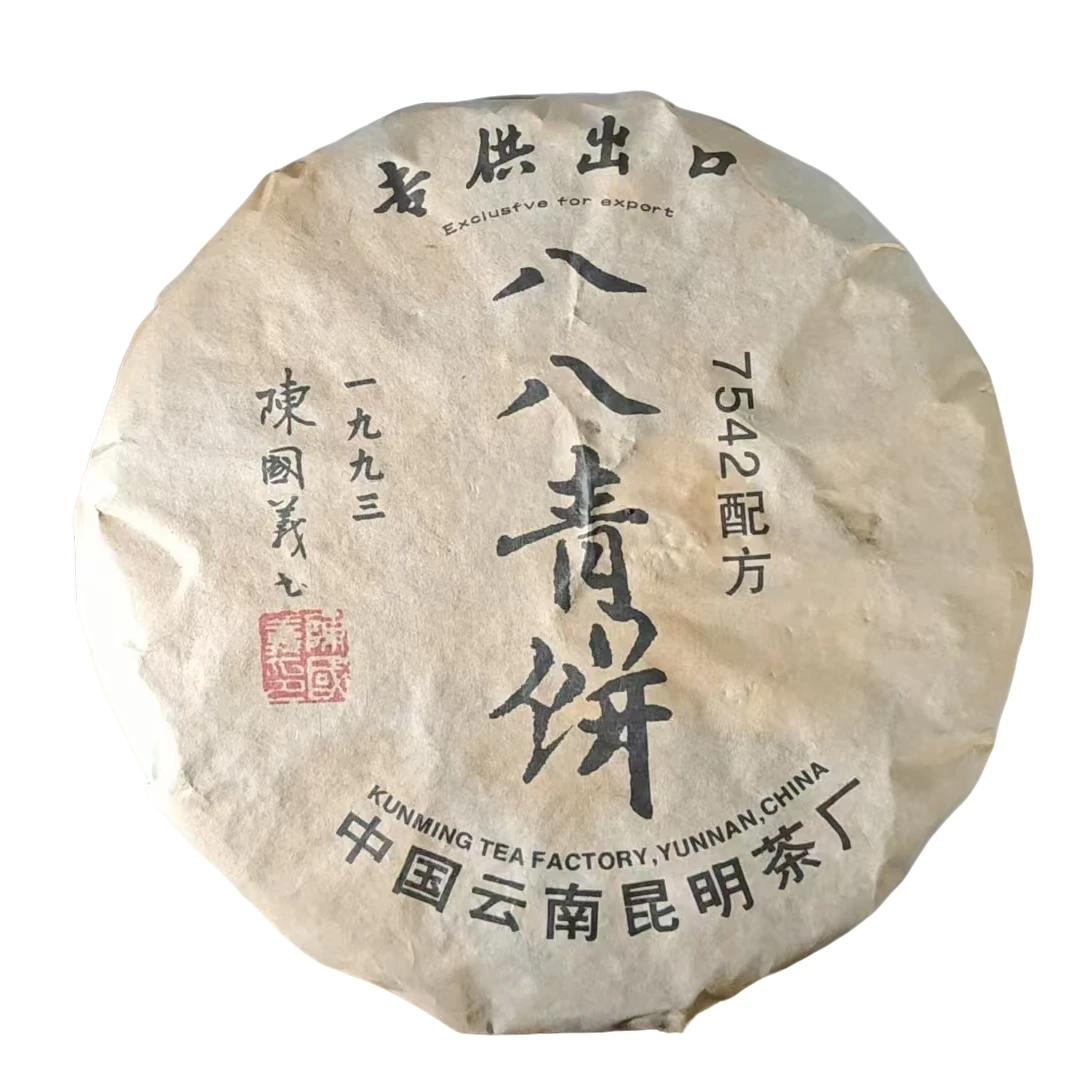 专供出口
Exclusfve for export
八八青饼
7542配方
一九九三
陳國義书
陳国義印
KUNMING TEA FACTORY,YUNNAN,CHINA
中国云南昆明茶厂